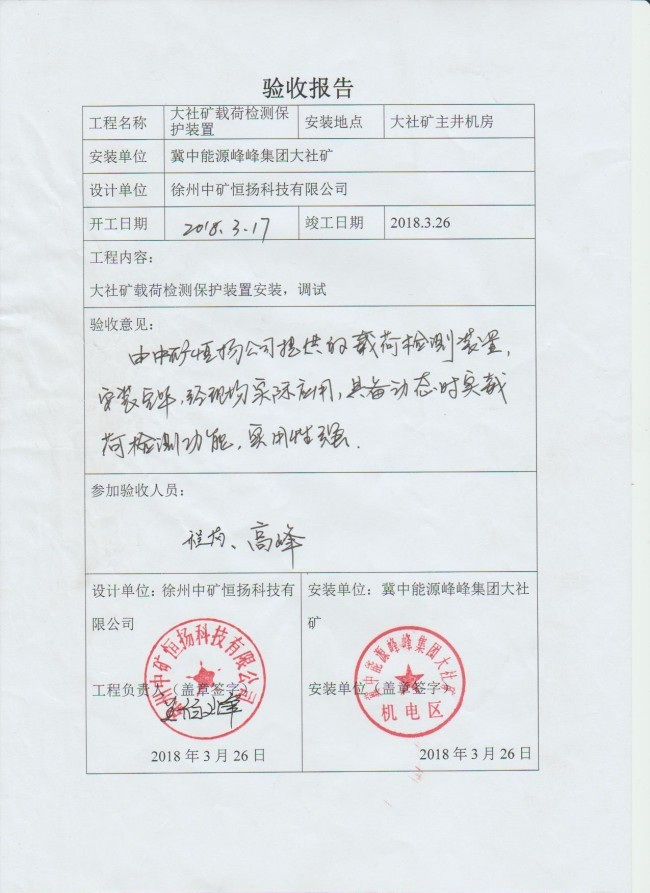 验收报告
工程名称 大社矿载荷检测保护装置 安装地点 大社矿主井机房
安装单位 冀中能源峰峰集团大社矿
设计单位 徐州中矿恒扬科技有限公司
开工日期 2018.3.17 竣工日期 2018.3.26
工程内容：
大社矿载荷检测保护装置安装，调试
验收意见：
由中矿恒扬公司提供的载荷检测装置，
安装完毕，经现场实际应用，具备动态时实载
荷检测功能，实用性强.
参加验收人员：
高峰
设计单位：徐州中矿恒扬科技有
限公司
安装单位：冀中能源峰峰集团大社
矿
徐州中矿恒扬科技有限公司
冀中能源峰峰集团大社矿
机电区
工程负责人（盖章签字）
安装单位（盖章签字）
2018 年 3 月 26 日
2018 年 3 月 26 日